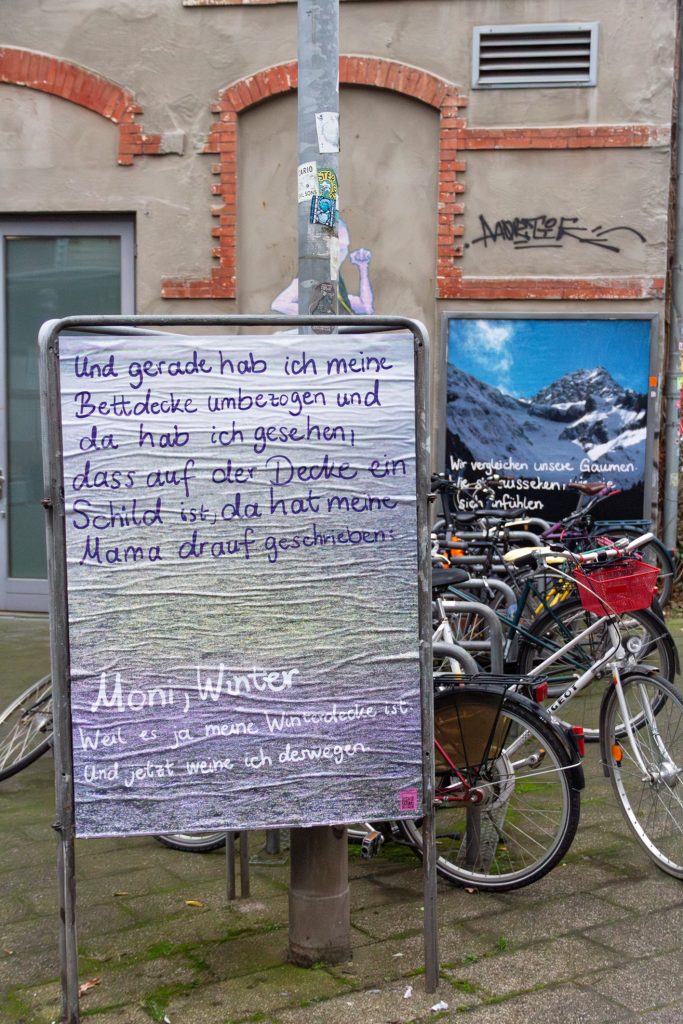 Und gerade hab ich meine
Bettdecke umbezogen und
da hab ich gesehen,
dass auf der Decke ein
Schild ist, da hat meine
Mama drauf geschrieben:
Moni, Winter
Weil es ja meine Winterdecke ist.
Und jetzt weine ich deswegen.
Wir vergleichen unsere Gaumen.
anfühlen.
PEUGEOT